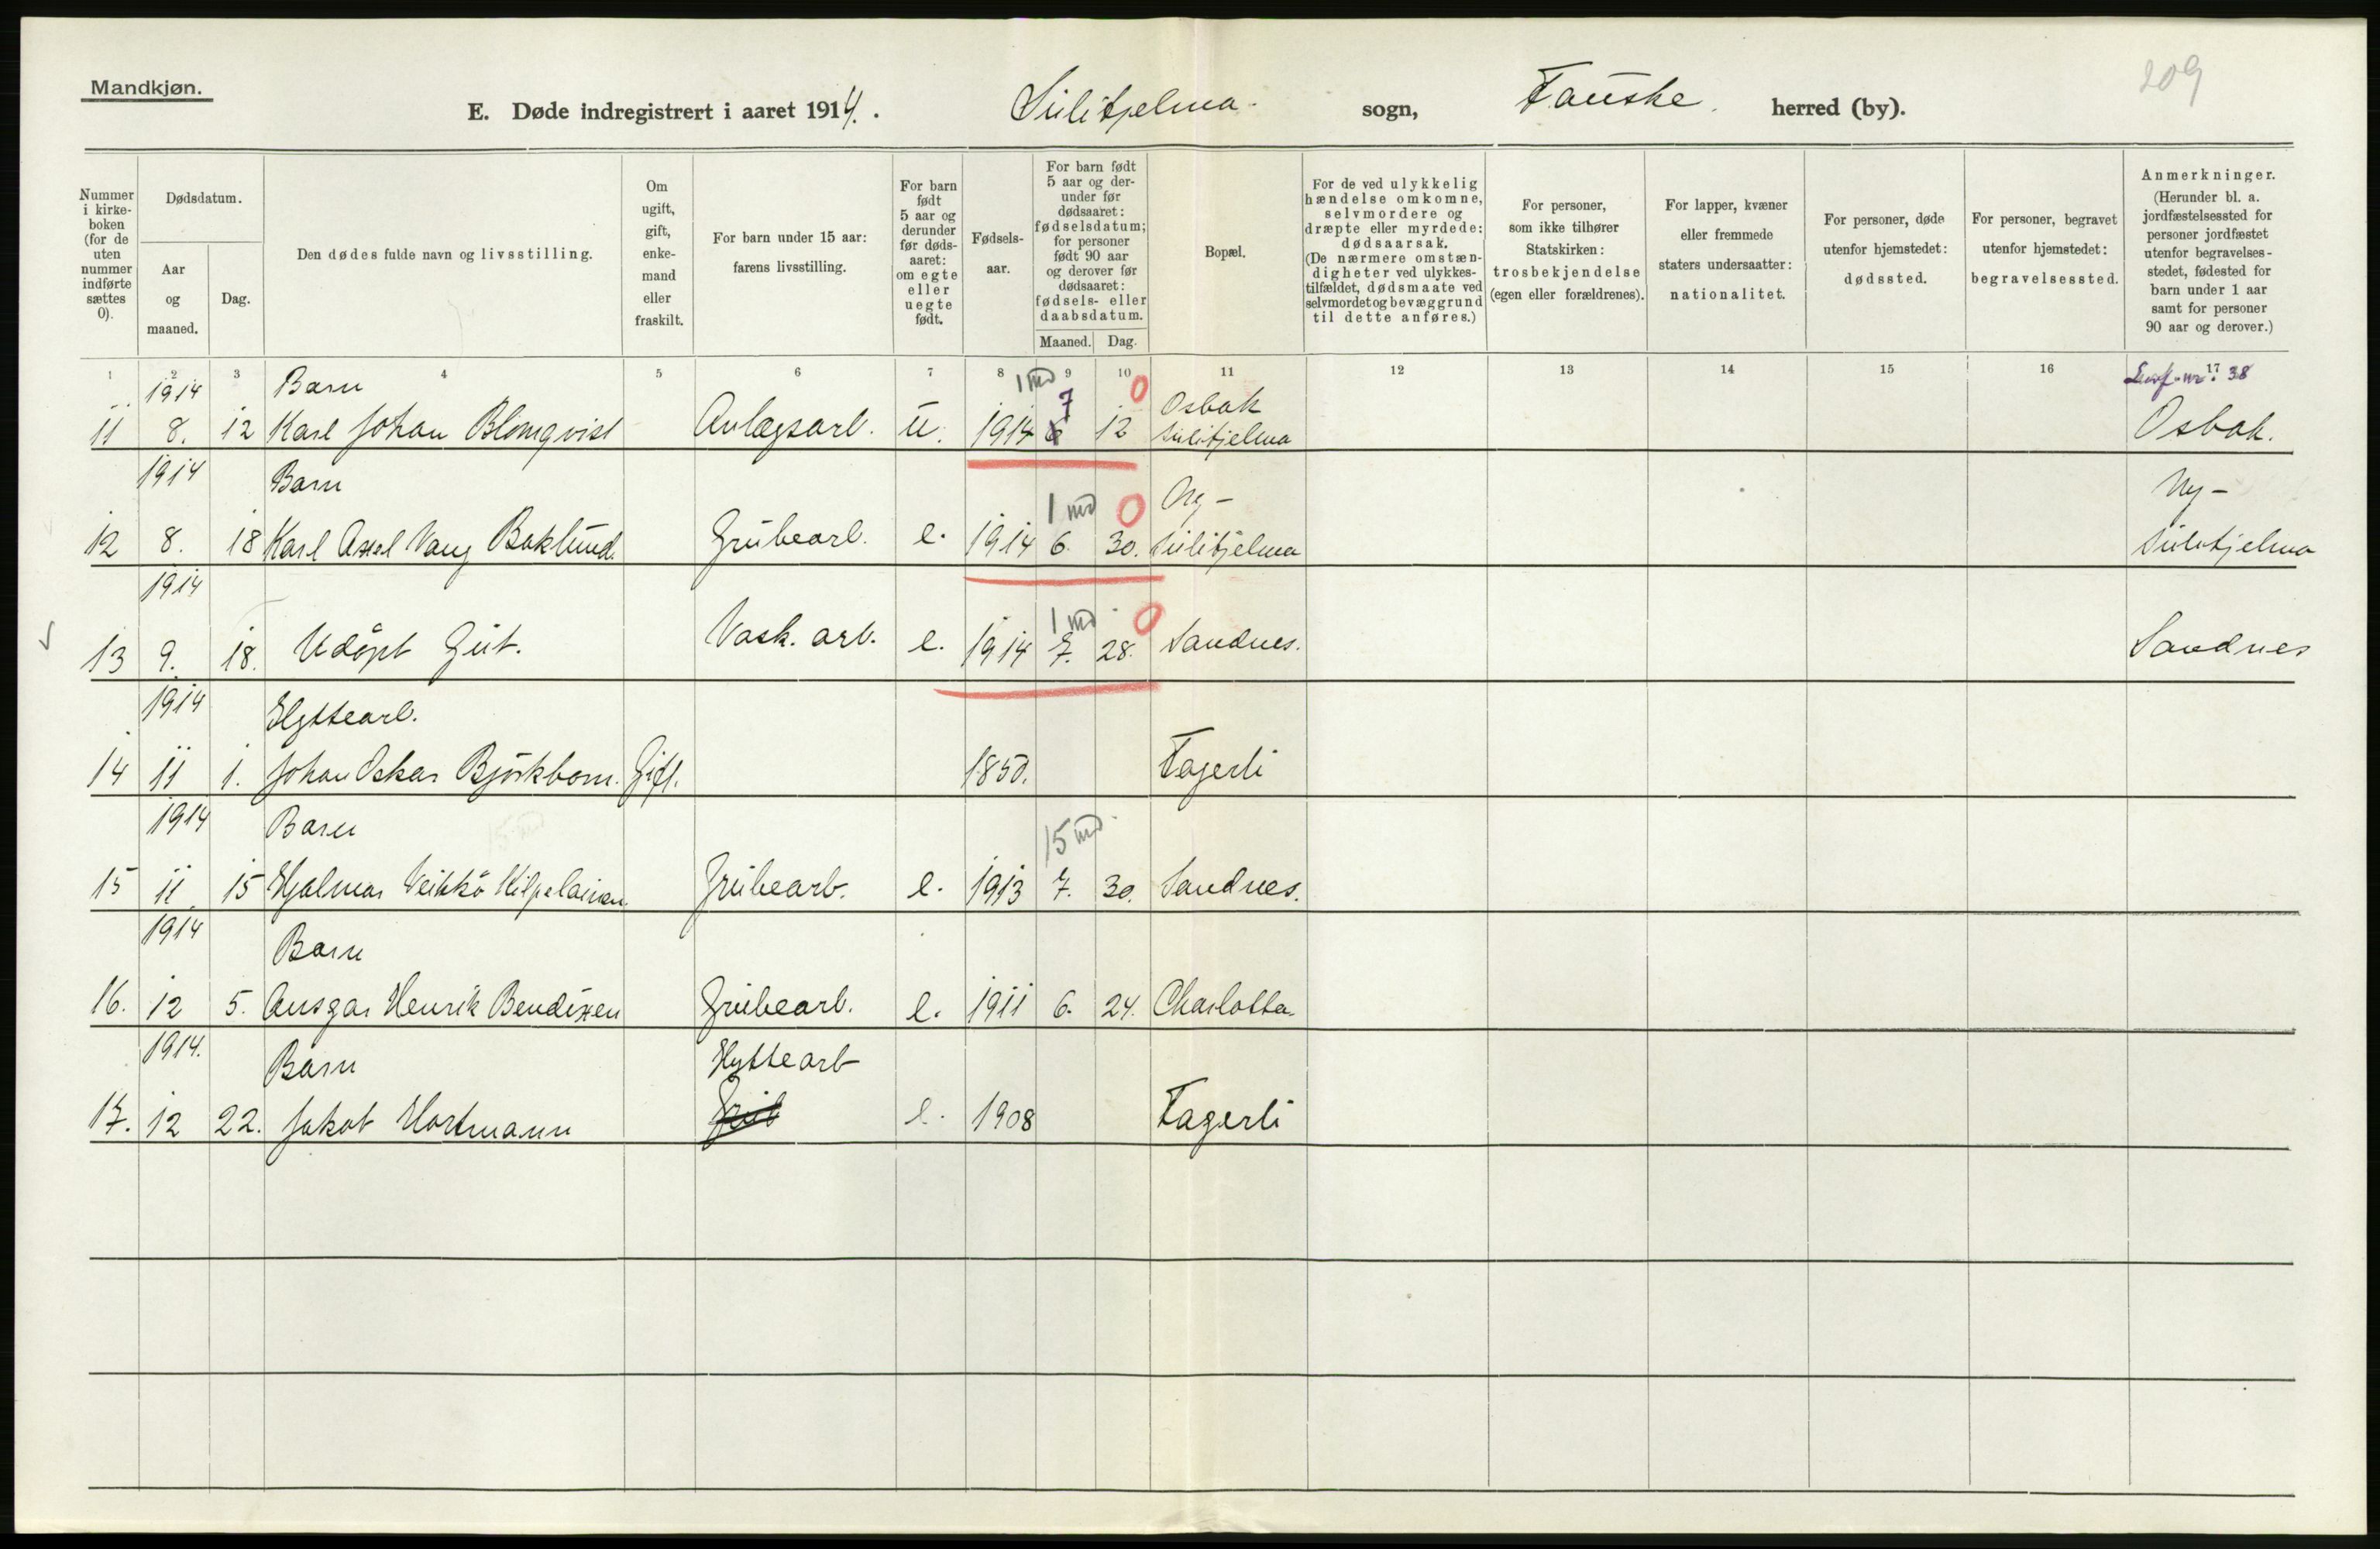 Mandkjøn.
209
E. Døde indregistrert i aaret 1914. Sulitjelma. sogn, Fauske. herred (by).
Nummer i kirkeboken (for de uten nummer indførte sættes 0).
Dødsdatum.
Aar og maaned.
Dag.
Den dødes fulde navn og livsstilling.
Om ugift, gift, enkemand eller fraskilt.
For barn under 15 aar: farens livsstilling.
For barn født 5 aar og derunder før dødsaaret: om egte eller uegte født.
Fødselsaar.
For barn født 5 aar og derunder før dødsaaret: fødselsdatum; for personer født 90 aar og derover før dødsaaret: fødsels- eller daabsdatum.
Maaned. Dag.
Bopæl.
For de ved ulykkelig hændelse omkomne, selvmordere og dræpte eller myrdede: dødsaarsak. (De nærmere omstændigheter ved ulykkestilfældet, dødsmaate ved selvmordet og bevæggrund til dette anføres.)
For personer, som ikke tilhører Statskirken: trosbekjendelse (egen eller forældrenes).
For lapper, kvæner eller fremmede staters undersaatter: nationalitet.
For personer, døde utenfor hjemstedet: dødssted.
For personer, begravet utenfor hjemstedet: begravelsessted.
Anmerkninger. (Herunder bl. a. jordfæstelsessted for personer jordfæstet utenfor begravelsesstedet, fødested for barn under 1 aar samt for personer 90 aar og derover.)
1 2 3 4 5 6 7 8 9 10 11 12 13 14 15 16 17
1914 Barn 1 md 7 0 Osbak nr. 38
11 8. 12 Karl Johan Blomqvist Anlægsarb. u. 1914 6 12 Sulitjelma Osbak.
1914 Barn 1 md 0 Ny- Ny-
12 8. 18 Karl Axel Vang Baklund. Grubearb. e. 1914 6. 30. Sulitjelma Sulitjelma
1914 1 md 0
13 9. 18. Udöpt Gut. Vask. arb. e. 1914 7. 28. Sandnes. Sandnes
1914 Hyttearb.
14 11 1. Johan Oskar Björkbom. Gift. 1850. Fagerli
1914 Barn 15 md
15 11 15 Hjalmar Veikkö Kilpelainen. Grubearb. e. 1913 7. 30. Sandnes.
1914 Barn
16. 12 5. Ansgar Henrik Bendixen Grubearb. e. 1911 6. 24. Charlotta.
1914. Barn Hyttearb
17. 12 22. Jakob Hortmann Grub e. 1908 Fagerli